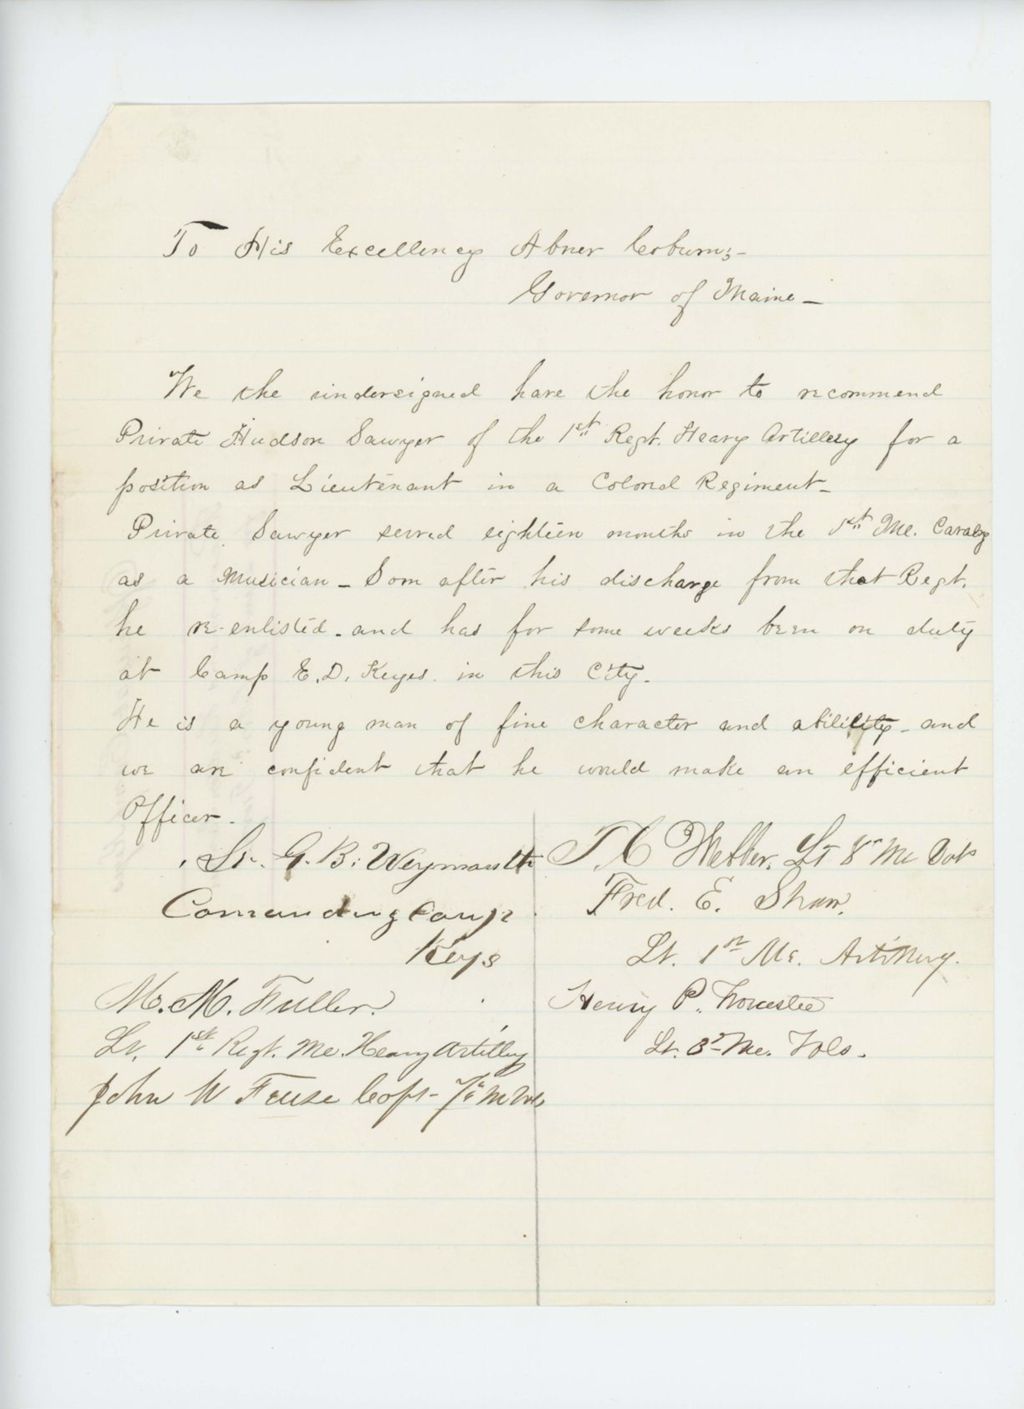 To His Excellency Abner Coburn,-
Governor of Maine -
We the undersigned have the honor to recommend
Private Hudson Sawyer of the 1st Regt. Heavy Artillery for a
position as Lieutenant in a Colored Regiment -
Private Sawyer served eighteen months in the 1st Me. Cavalry
as a Musician - Soon after his discharge from that Regt.
he re-enlisted - and has for some weeks been on duty
at Camp E. D. Keyes in this City -
He is a young man of fine character and ability - and
we are confident that he would make an efficient
Officer -
Lt. G. B. Weymouth
Comanding Camp
Keys
M. M. Fuller.
Lt. 1st Regt. Me. Heavy Artillery
John W Capt - 7th M Vols
T. C Webber. Lt 8th Me Vols
Fred. E. Shaw.
Lt. 1st Me. Artillery.
Henry P. Worcester
Lt. 3d Me. Vols.